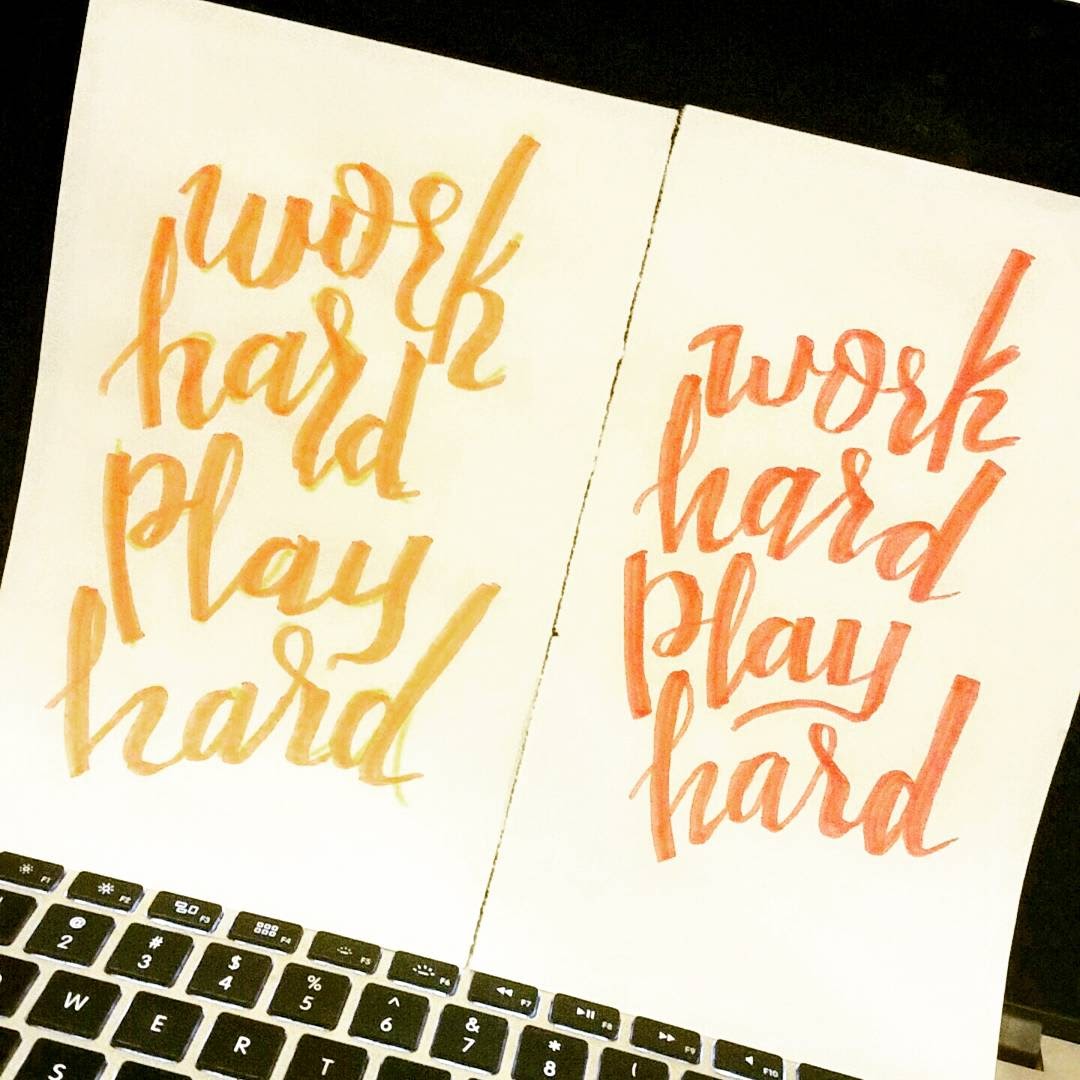 work
hard
play
hard
work
hard
play
hard
F1 F2 F3 F4 F5 F6 F7 F8 F9 F10
@ # $ % ^ & * (
2 3 4 5 6 7 8
W E R T
S